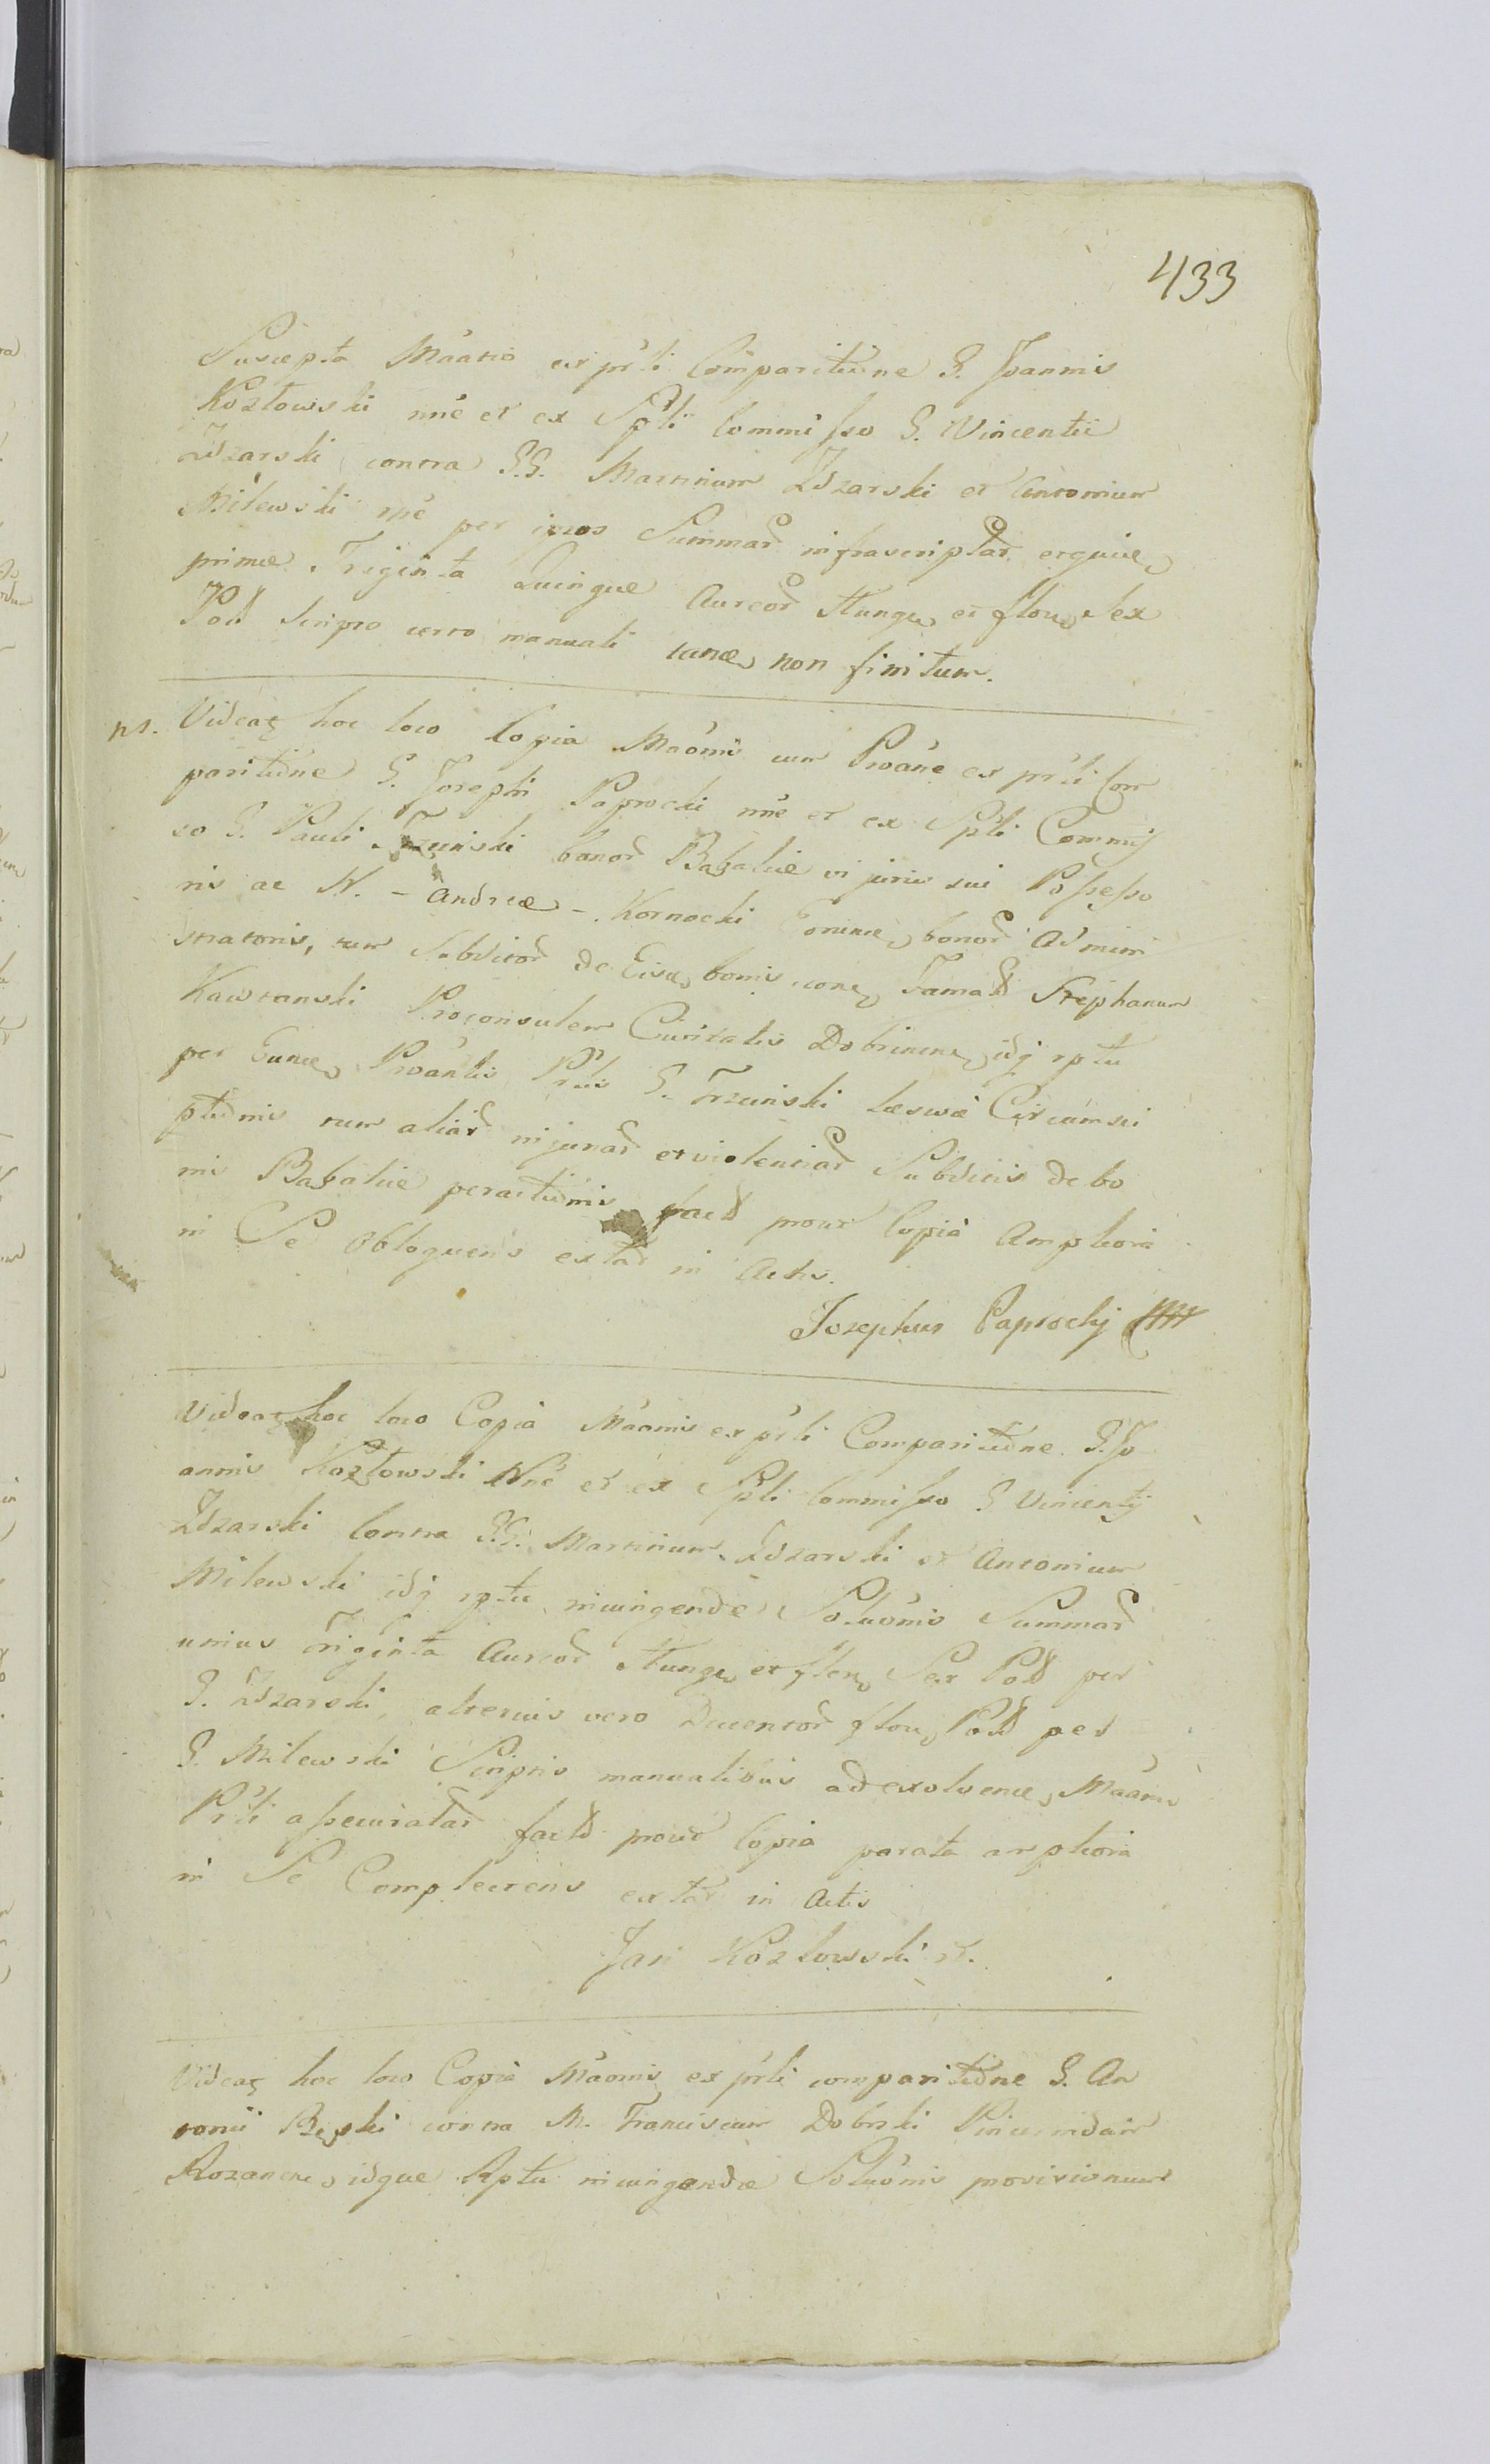 433
Suscepta Máatio ex prli Comparitiõne G. Joannis
Kozłowski nńe et ex Spli Commisso G. Vincentii
Zdzarski contra G.G. Martinum Zdzarski et Antonium
Milewski rñe per ipsos Summar infrascriptar
primæ Triginta Quinque Aureor Hung et flor Sex
Poll Scripto certo manuali non finitum.
ns. Videaz hoc loco Copia Máonis cum Proáne ex prli Com
paritiõne G. Josephi Paprocki nńe et ex Spli Commis
so G. Pauli Trzcinski bonor Babalice vi juris sui Possesso
ris ac N. - Andreæ - Kornacki bonor Admini
stratoris, tum Subditor de Eisd bonis Famat Stephanum
Kawranski Proconsulem Civitatis Dobrinen idq rptu
per Prli G. Trzcinski Circumscri
ptiõnis tum aliar injuriar et violentiar Subditis de bo
nis Babalice peractiõnis fact prout Copia Ampliora
in Se Obloquens extat in Actis.
Josephus Paprocky
Videaz hoc loco Copia Máonis ex prli Comparitiõne G. Jo
annis Kozłowski Nńe et ex Spli Commisso G. Vincentij
Zdzarski Contra G.G. Martinum Zdzarski et Antonium
Milewski idq rptu injungendæ Soluõnis Summar
unius Triginta Aureor Hung et flor Sex Poll per
G. Zdzarski, alterius vero Ducentor flor Poll per
G. Milewski Scriptis manualibus ad exolven
Prli assecuratar fact prout Copia parata ampliora
in Se Complectens extat in Actis
Jan Kozłowski
Videaz hoc loco Copia Máonis ex prli comparitiõne G. An
tonii contra M. Franciscum Dobrski
idque Rptu injungendæ Soluõnis provisionum